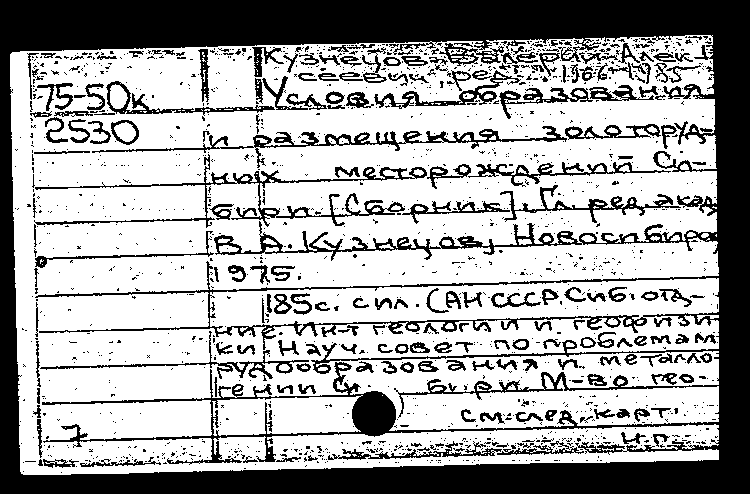 Кузнецов, Валерий Алек
сеевич, ред.
75-50к
Условия образования
2530
и размещения золоторуд-
ных месторождений Си-
бири. [Сборник]. Гл. ред. акад.
В. А. Кузнецов, Новосибирск,
1975.
185с. с ил. (АН СССР. Сиб. отд-
ние. Ин-т геологии и геофизи
ки. Науч. совет по проблемам
рудообразования и металло-
гении Си бири. М-во гео-
см. след. карт.
7
н.п.